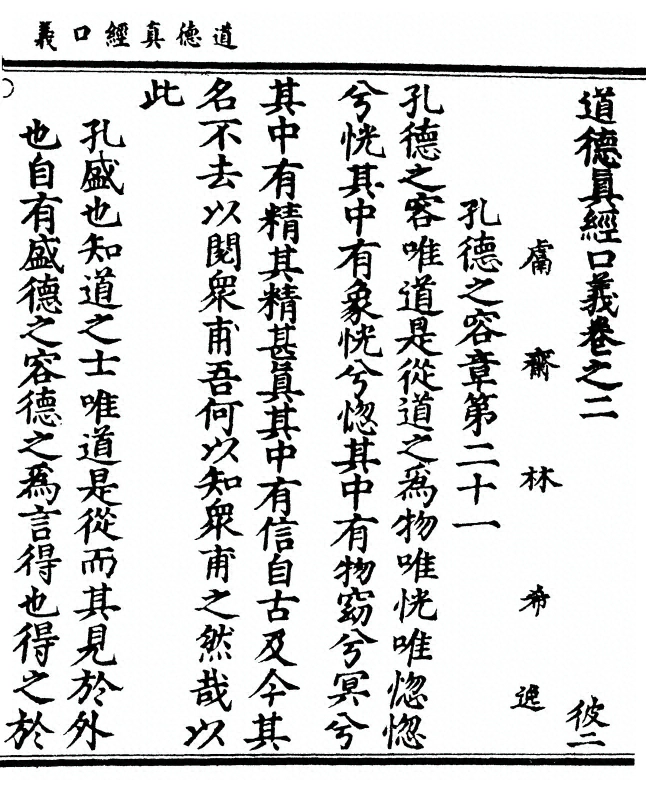 道德真經口義
道德眞經口義卷之二 彼二
鬳齋林希逸
孔德之容章第二十一
孔德之容唯道是從道之爲物唯恍唯惚惚
兮恍其中有象恍兮惚其中有物窈兮冥兮
其中有精其精甚眞其中有信自古及今其
名不去以閱衆甫吾何以知衆甫之然哉以
此
孔盛也知道之士唯道是從而其見於外
也自有盛德之容德之爲言得也得之於